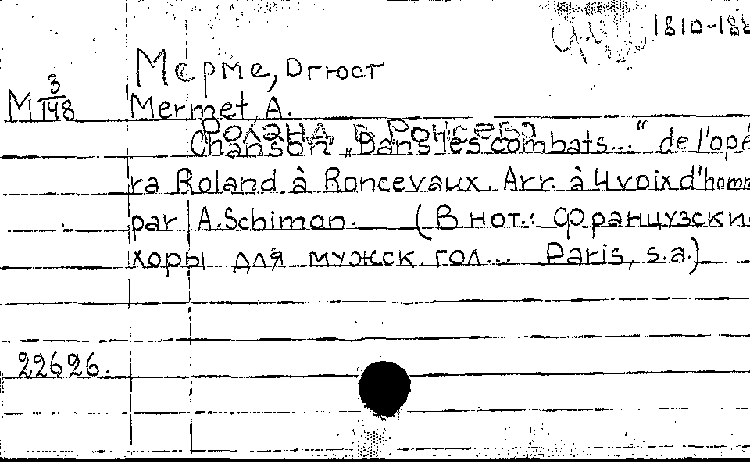 1810-188
Мерме, Огюст
М 3/148 Mermet, A.
Роланд в Ронсево
Chanson „Dans les combats..." de l'opé
ra Roland à Roncevaux. Arr. à 4 voix d'homm
par A. Schimon. (В нот.: Французски
хоры для мужск. гол... Paris, s.a.)
22626.